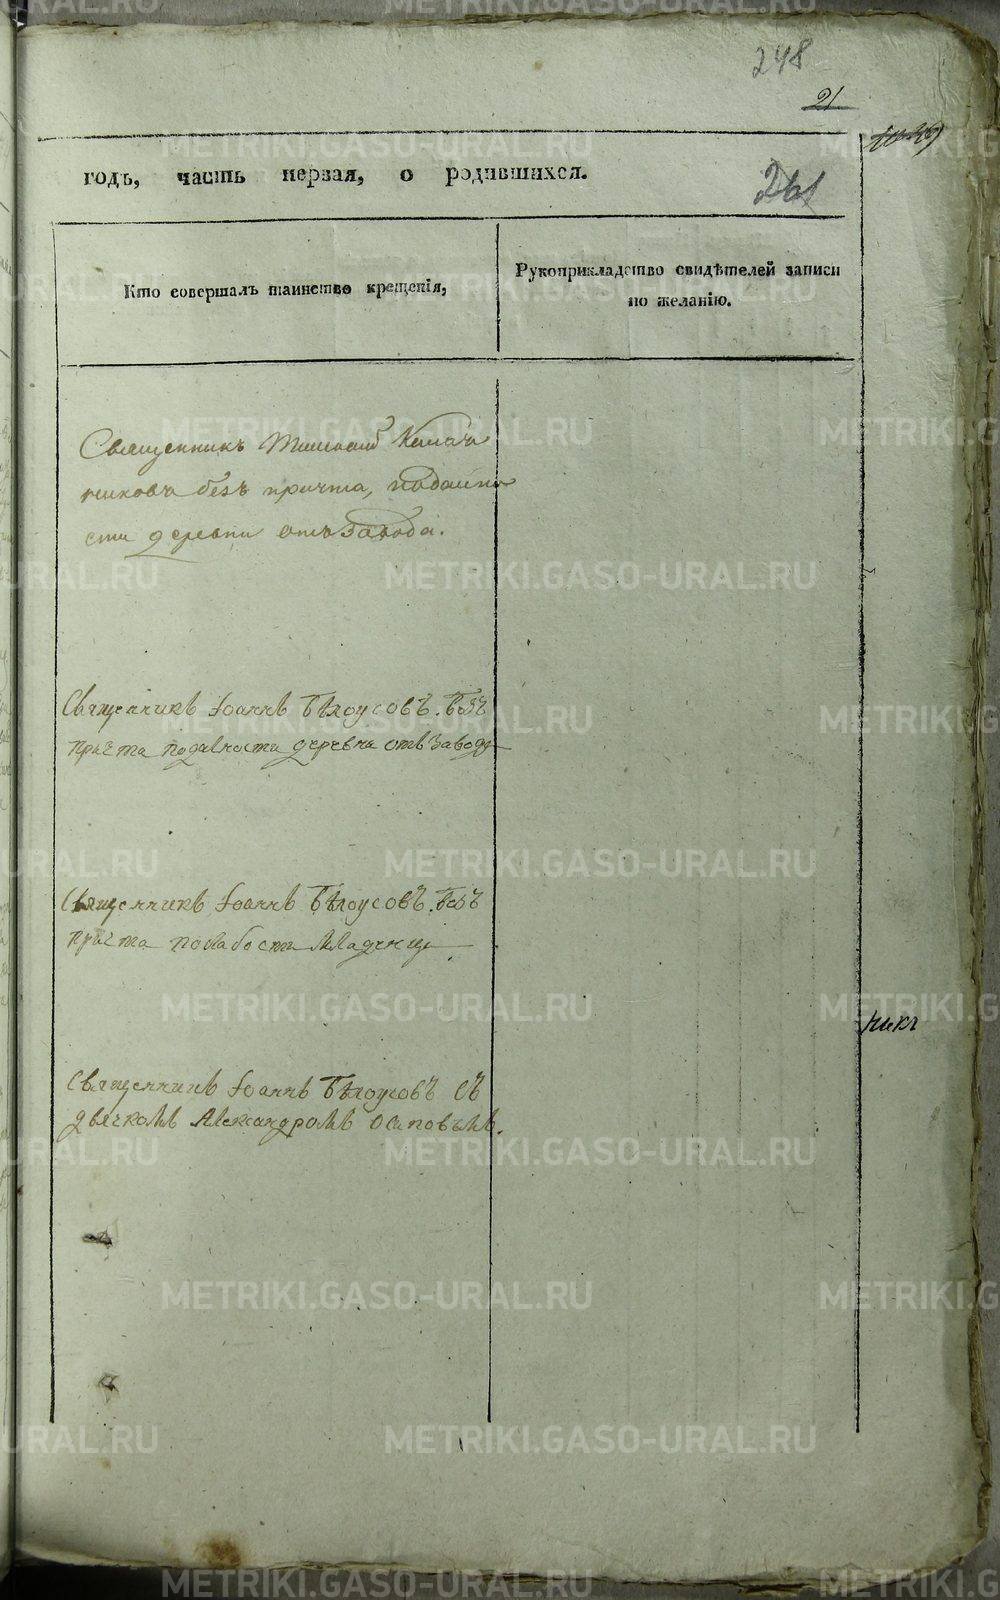 248
21
годъ, часть первая, о родившихся.
261
Кто совершалъ таинство крещенія,
Рукоприкладство свидѣтелей записи
по желанію.
Священникъ
никовъ безъ причта, подально
сти деревни отъ завода.
Священникъ Іоаннъ Бѣлоусовъ. Безъ
причта подальности деревни отъ завода
Священникъ Іоаннъ Бѣлоусовъ. Безъ
причта послабости младенца
Священникъ Іоаннъ Бѣлоусовъ съ
дьячкомъ Александромъ Осиповымъ.
никъ
METRIKI.GASO-URAL.RU